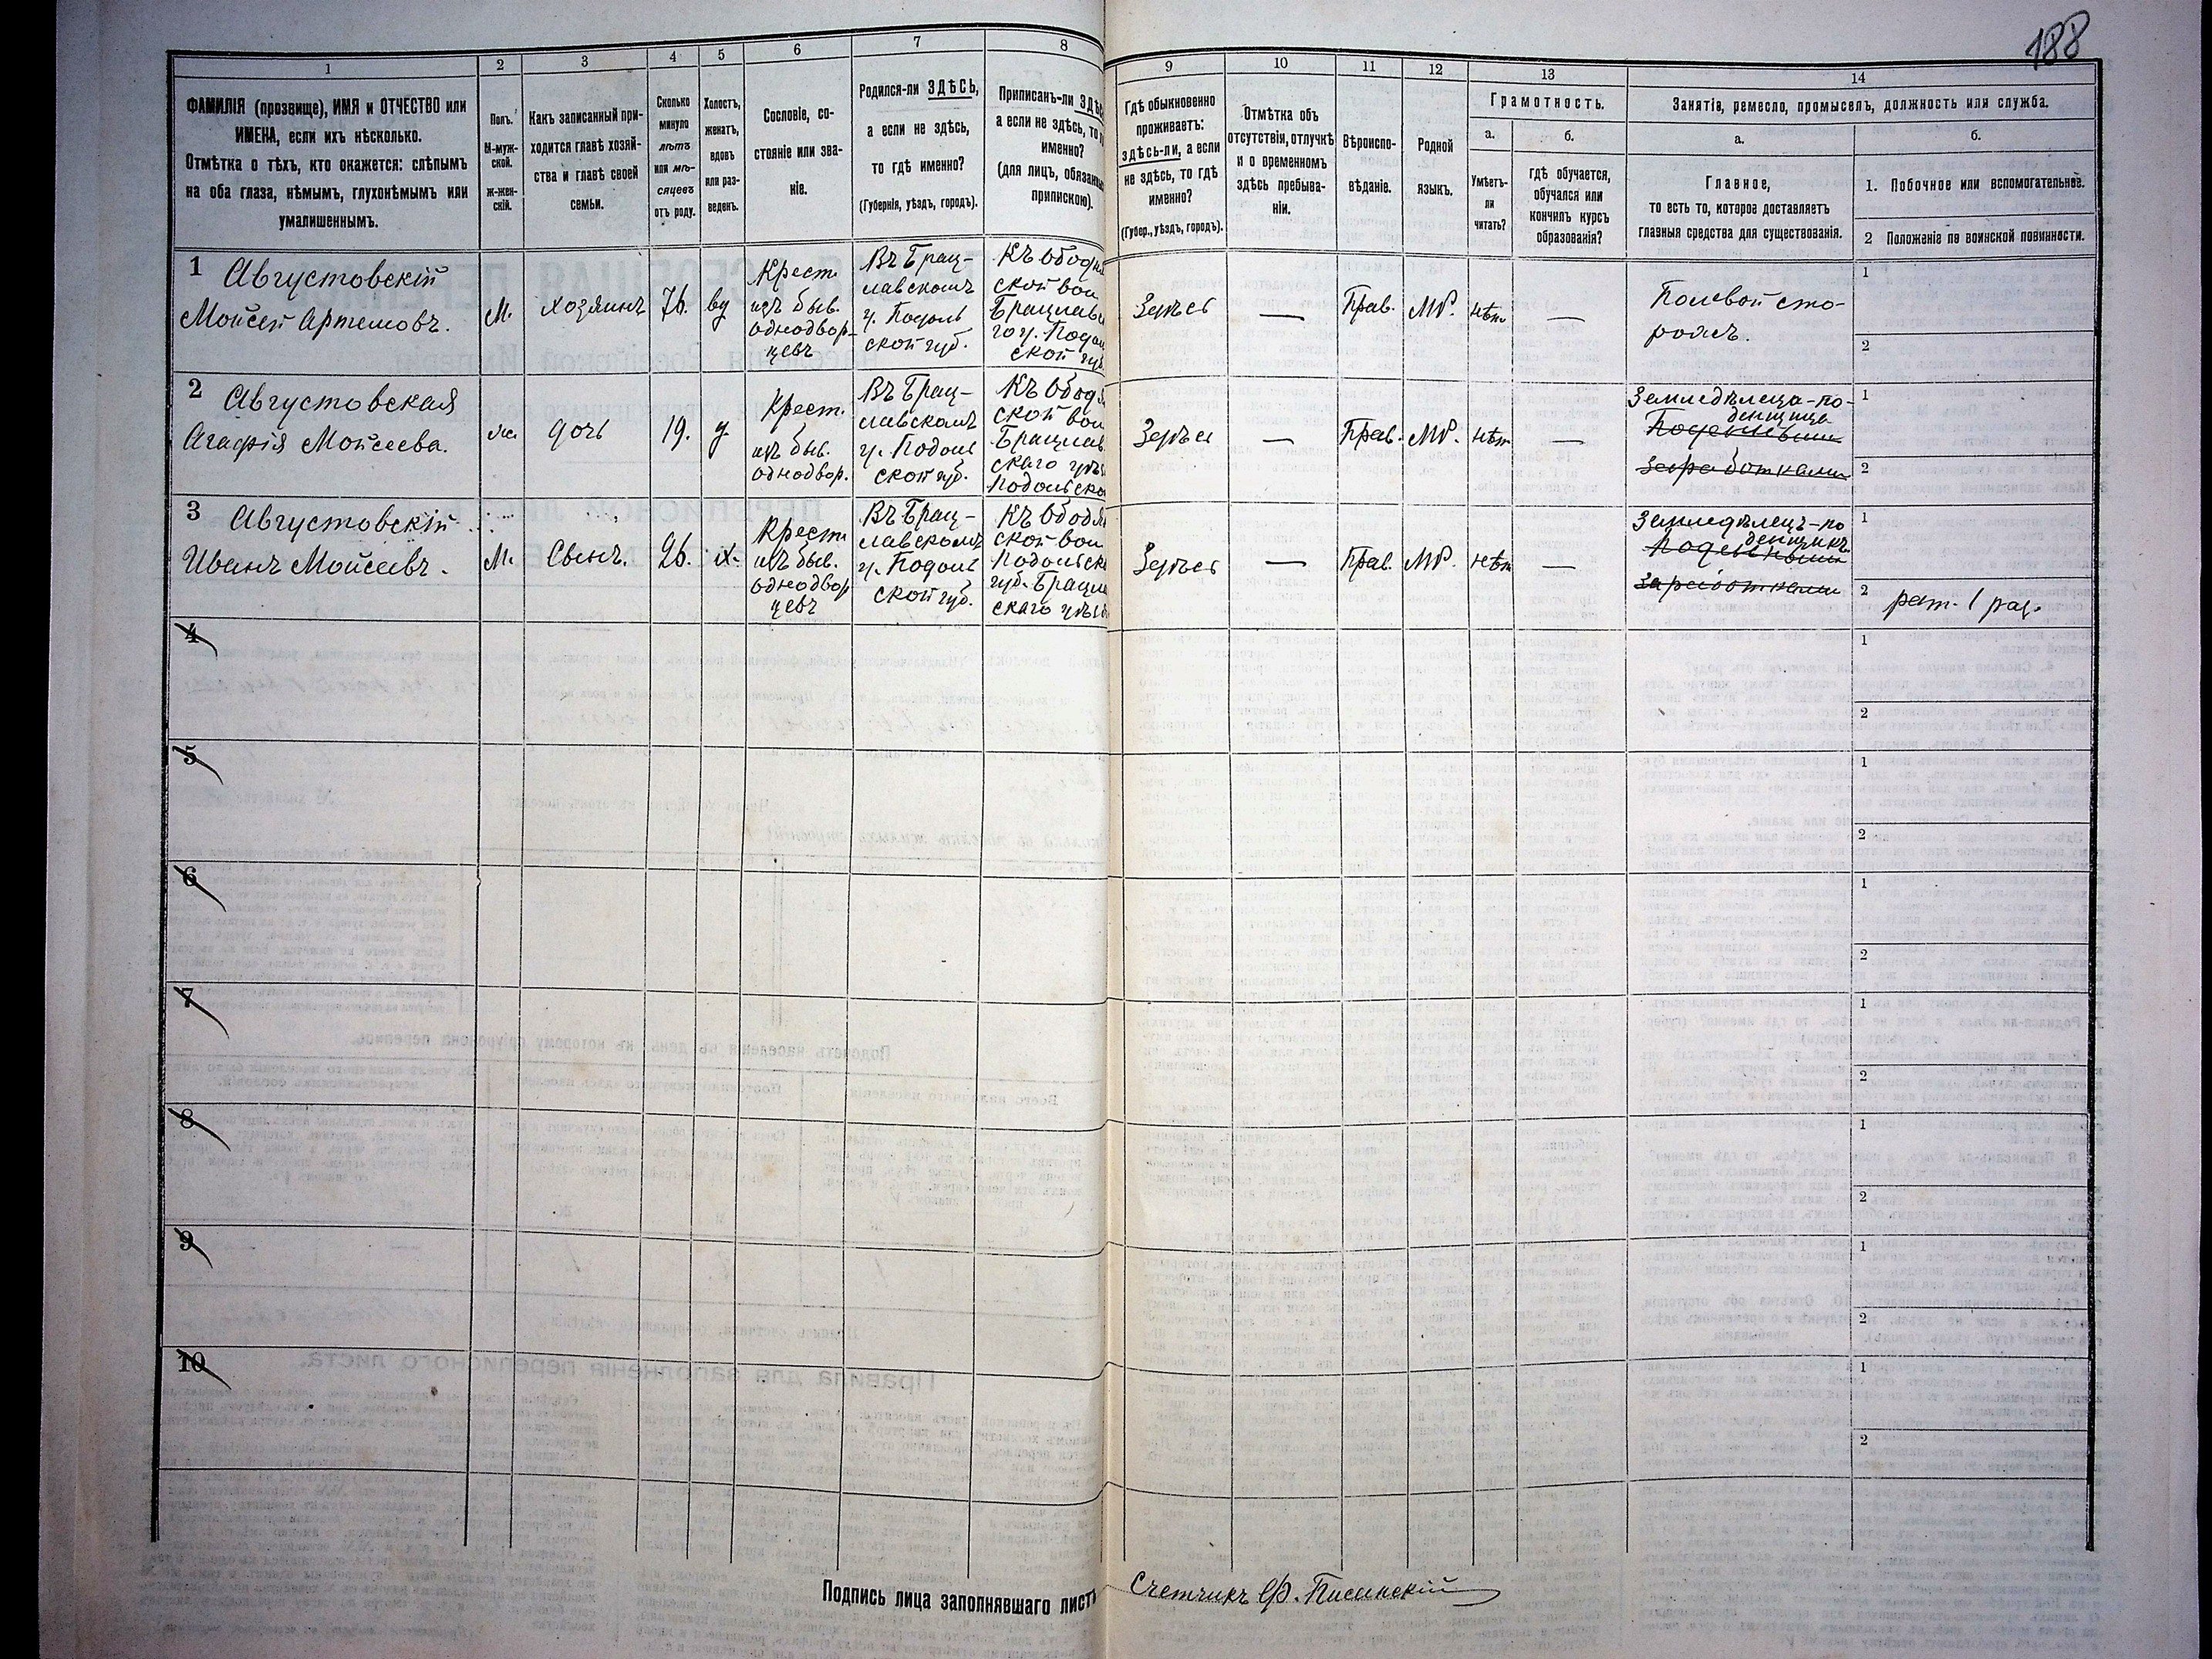 188
1
2
3
4
5
6
7
8
9
10
11
12
13
14
ФАМИЛІЯ (прозвище), ИМЯ и ОТЧЕСТВО или
ИМЕНА, если ихъ нѣсколько.
Отмѣтка о тѣхъ, кто окажется: слѣпымъ
на оба глаза, нѣмымъ, глухонѣмымъ или
умалишеннымъ.
Полъ.
М-муж-
ской.
Ж-жен-
скій.
Какъ записанный при-
ходится главѣ хозяй-
ства и главѣ своей
семьи.
Сколько
минуло
лѣтъ
или мѣ-
сяцевъ
отъ роду.
Холостъ,
женатъ,
вдовъ
или раз-
веденъ.
Сословіе, со-
стояніе или зва-
ніе.
Родился-ли ЗДѢСЬ,
а если не здѣсь,
то гдѣ именно?
(Губернія, уѣздъ, городъ).
Приписанъ-ли ЗДѢ
а если не здѣсь, то
именно?
(для лицъ, обязан
припискою).
Гдѣ обыкновенно
проживаетъ:
здѣсь-ли, а если
не здѣсь, то гдѣ
именно?
(Губер., уѣздъ, городъ).
Отмѣтка объ
отсутствіи, отлучкѣ
и о временномъ
здѣсь пребыва-
ніи.
Вѣроиспо-
вѣданіе.
Родной
языкъ.
Грамотность.
а.
Умѣетъ-
ли
читать?
б.
гдѣ обучается,
обучался или
кончилъ курсъ
образованія?
Занятія, ремесло, промыселъ, должность или служба.
а.
Главное,
то есть то, которое доставляетъ
главныя средства для существованія.
б.
1. Побочное или вспомогательное.
2 Положеніе по воинской повинности.
1 Августовскій
Мойсей Артемовъ.
М.
хозяинъ
76.
вд
Крест.
изъ быв.
однодвор-
цевъ
Въ Брац-
лавскомъ
у. Подоль
ской губ.
Къ Ободн
ской вол
Брацлавс
го у. Подол
ской губ
Здѣсь
—
Прав.
МР.
нѣт
—
Полевой сто-
рожъ.
1
2
2 Августовская
Агафія Мойсеева.
ж.
дочь
19.
д
Крест.
изъ быв.
однодвор.
Въ Брац-
лавскомъ
у. Подоль
ской губ.
Къ Обод
ской вол
Брацлав
скаго уѣз
Подольско
Здѣсь
—
Прав.
МР.
нѣт
—
Земледѣлеца-по-
денщица
Поденными
заработками
1
2
3 Августовскій
Иванъ Мойсеевъ.
М.
Сынъ.
26.
х.
Крест
изъ быв.
однодвор
цевъ
Въ Брац-
лавскомъ
у. Подоль
ской губ.
Къ Ободн
ской вол
Подольск
губ. Брацла
скаго уѣзд
Здѣсь
—
Прав.
МР.
нѣт
—
Земледѣлецъ-по
денщикъ
Поденными
заработками
1
2 рат. 1 раз.
4
1
2
5
1
2
6
1
2
7
1
2
8
1
2
9
1
2
10
1
2
Подпись лица заполнявшаго листъ Счетчикъ Ф. Писинскій